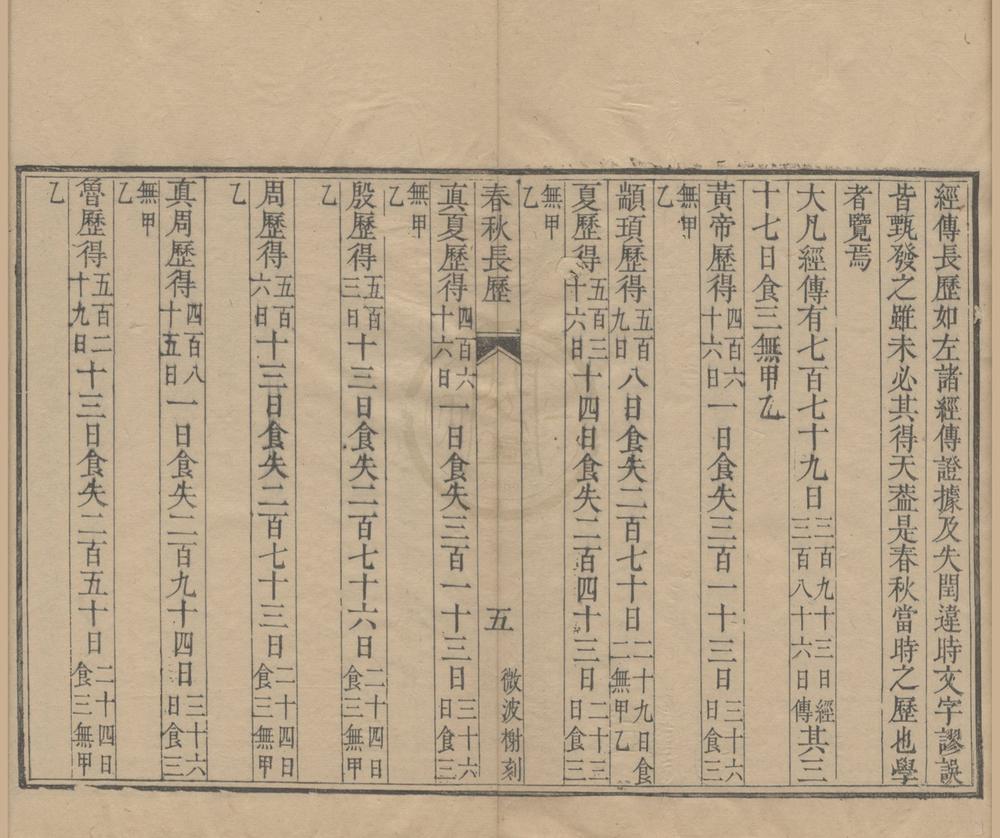 經傳長歷如左諸經傳證據及失閏違時文字謬誤
皆甄發之雖未必其得天葢是春秋當時之歷也學
者覽焉
大凡經傳有七百七十九日三百九十三日經三百八十六日傳其三
十七日食三無甲乙
黃帝歷得四百六十六日一日食失三百一十三日三十六日食三
無甲乙
顓頊歷得五百九日八日食失二百七十日二十九日食二無甲乙
夏歷得五百三十六日十四日食失二百四十三日二十三日食三
無甲乙
春秋長歷 五 微波榭刻
真夏歷得四百六十六日一日食失三百一十三日三十六日食三
無甲乙
殷歷得五百三日十三日食失二百七十六日二十四日食三無甲
乙
周歷得五百六日十三日食失二百七十三日二十四日食三無甲
乙
真周歷得四百八十五日一日食失二百九十四日三十六日食三
無甲乙
魯歷得五百二十九日十三日食失二百五十日二十四日食三無甲
乙